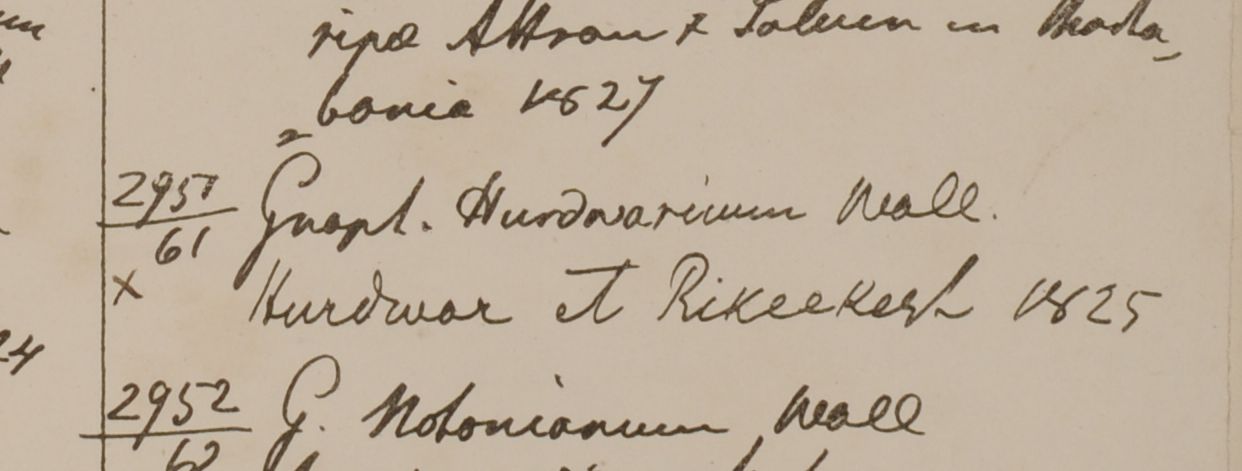 ripæ Attran & Saluen in Marta
=bania 1827
2951 Gnaph. Hurdwaricum Wall.
61
× Hurdwar et Rikeekesh 1825
24
2952 G. Notonianum Wall
62